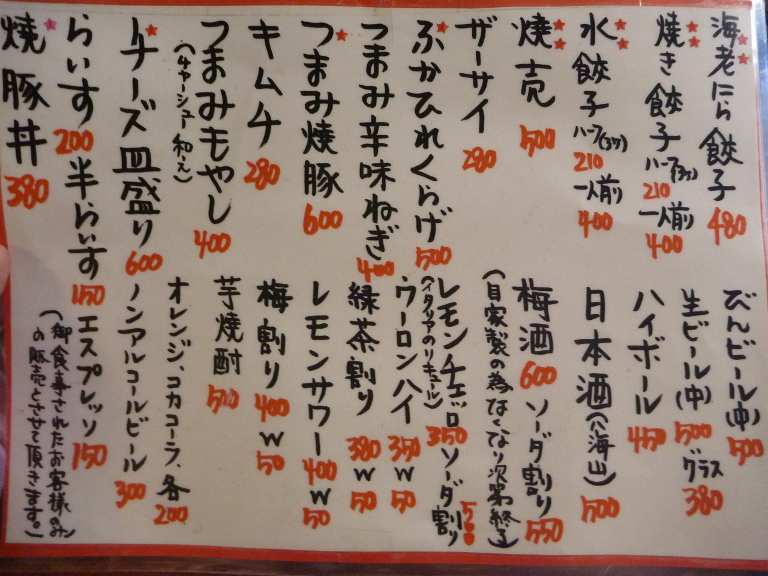 海老にら餃子 480
焼き餃子 ハーフ(3ヶ) 210 一人前 400
水餃子 ハーフ(3ヶ) 210 一人前 400
焼売 500
ザーサイ 280
ふかひれくらげ 500
つまみ辛味ねぎ 400
つまみ焼豚 600
キムチ 280
つまみもやし 400
(チャーシュー和え)
チーズ皿盛り 600
らいす 200 半らいす 150
焼豚丼 380
びんビール(中) 500
生ビール(中) 500 グラス 380
ハイボール 450
日本酒(八海山) 500
梅酒 600 ソーダ割り 550
(自家製の為なくなり次第終了)
レモンチェッロ 350 ソーダ割り 500
(イタリアのリキュール)
ウーロンハイ 350 W 50
緑茶割り 380 W 50
レモンサワー 400 W 50
梅割り 400 W 50
芋焼酎 500
オレンジ、コカコーラ、各 200
ノンアルコールビール 300
エスプレッソ 150
(御食事されたお客様のみ
の販売とさせて頂きます。)